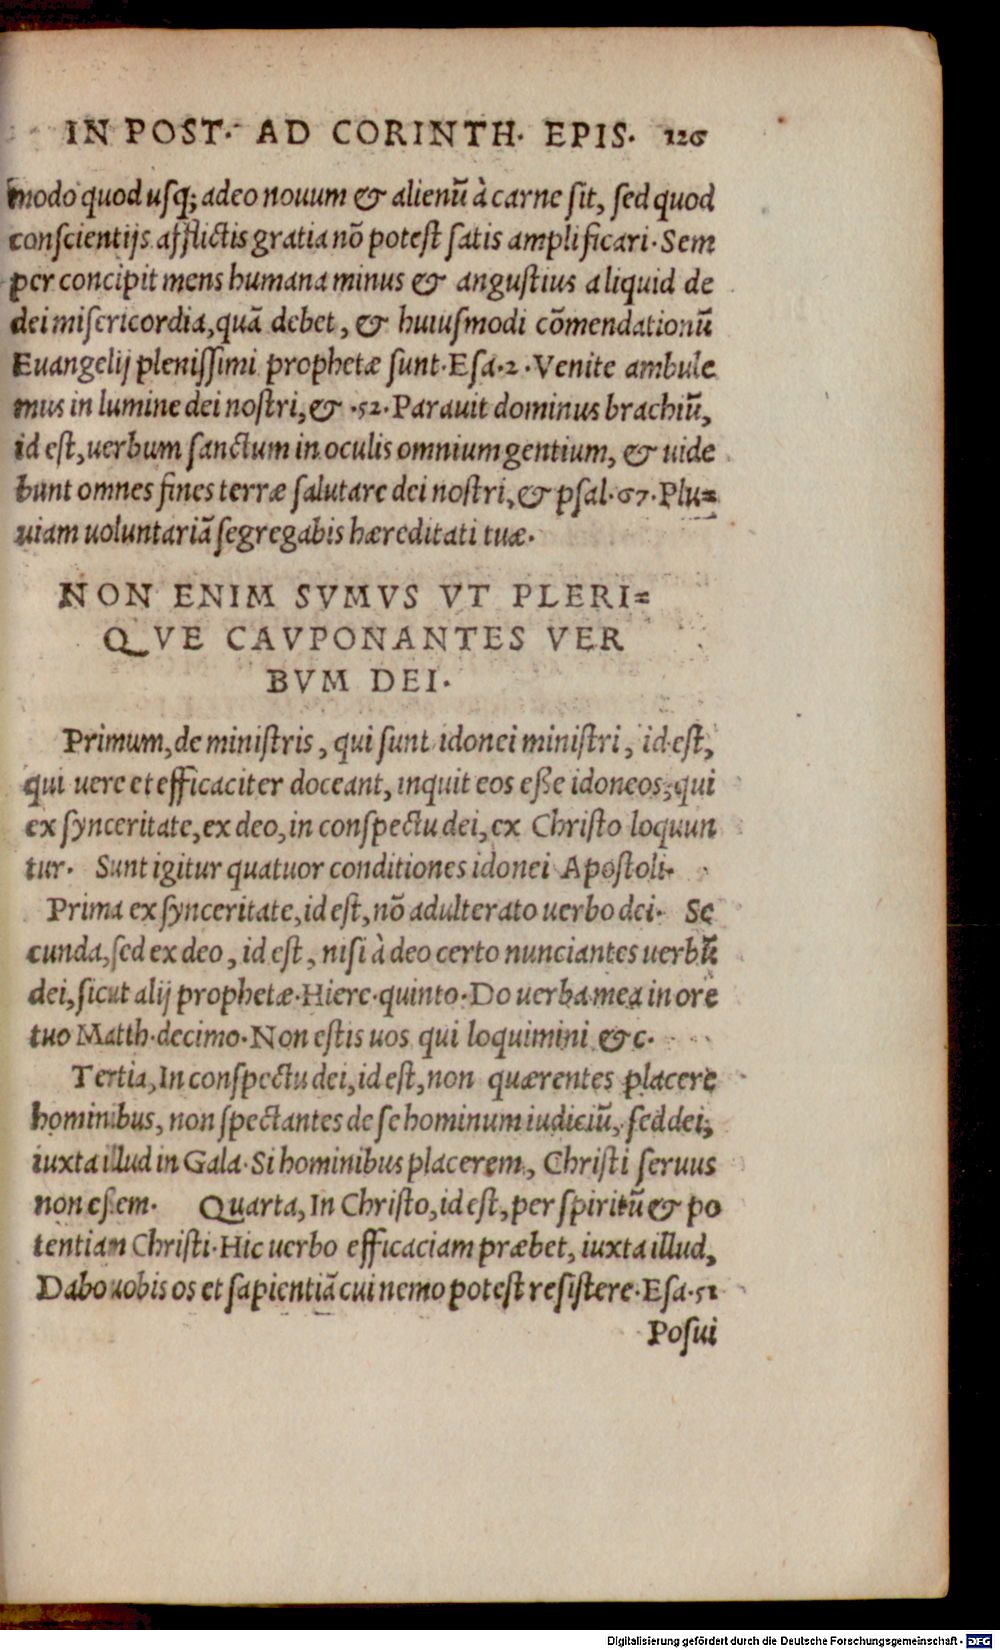 IN POST. AD CORINTH. EPIS. 126
modo quod usq; adeo nouum & alienũ à carne sit, sed quod
conscientijs afflictis gratia nõ potest satis amplificari. Sem
per concipit mens humana minus & angustius aliquid de
dei misericordia, quã debet, & huiusmodi cõmendationũ
Euangelij plenissimi prophetæ sunt. Esa. 2. Venite ambule
mus in lumine dei nostri, & .52. Parauit dominus brachiũ,
id est, uerbum sanctum in oculis omnium gentium, & uide
bunt omnes fines terræ salutare dei nostri, & psal. 67. Plu=
uiam uoluntariã segregabis hæreditati tuæ.
NON ENIM SVMVS VT PLERI=
QVE CAVPONANTES VER
BVM DEI.
Primum, de ministris, qui sunt idonei ministri, id est,
qui uere et efficaciter doceant, inquit eos eße idoneos, qui
ex synceritate, ex deo, in conspectu dei, ex Christo loquun
tur. Sunt igitur quatuor conditiones idonei Apostoli.
Prima ex synceritate, id est, nõ adulterato uerbo dei. Se
cunda, sed ex deo, id est, nisi à deo certo nunciantes uerbũ
dei, sicut alij prophetæ. Hiere. quinto. Do uerba mea in ore
tuo Matth. decimo. Non estis uos qui loquimini &c.
Tertia, In conspectu dei, id est, non quærentes placere
hominibus, non spectantes de se hominum iudiciũ, sed dei,
iuxta illud in Gala. Si hominibus placerem, Christi seruus
non eßem. Quarta, In Christo, id est, per spiritũ & po
tentiam Christi. Hic uerbo efficaciam præbet, iuxta illud,
Dabo uobis os et sapientiã cui nemo potest resistere. Esa. 51
Posui
Digitalisierung gefördert durch die Deutsche Forschungsgemeinschaft - DFG